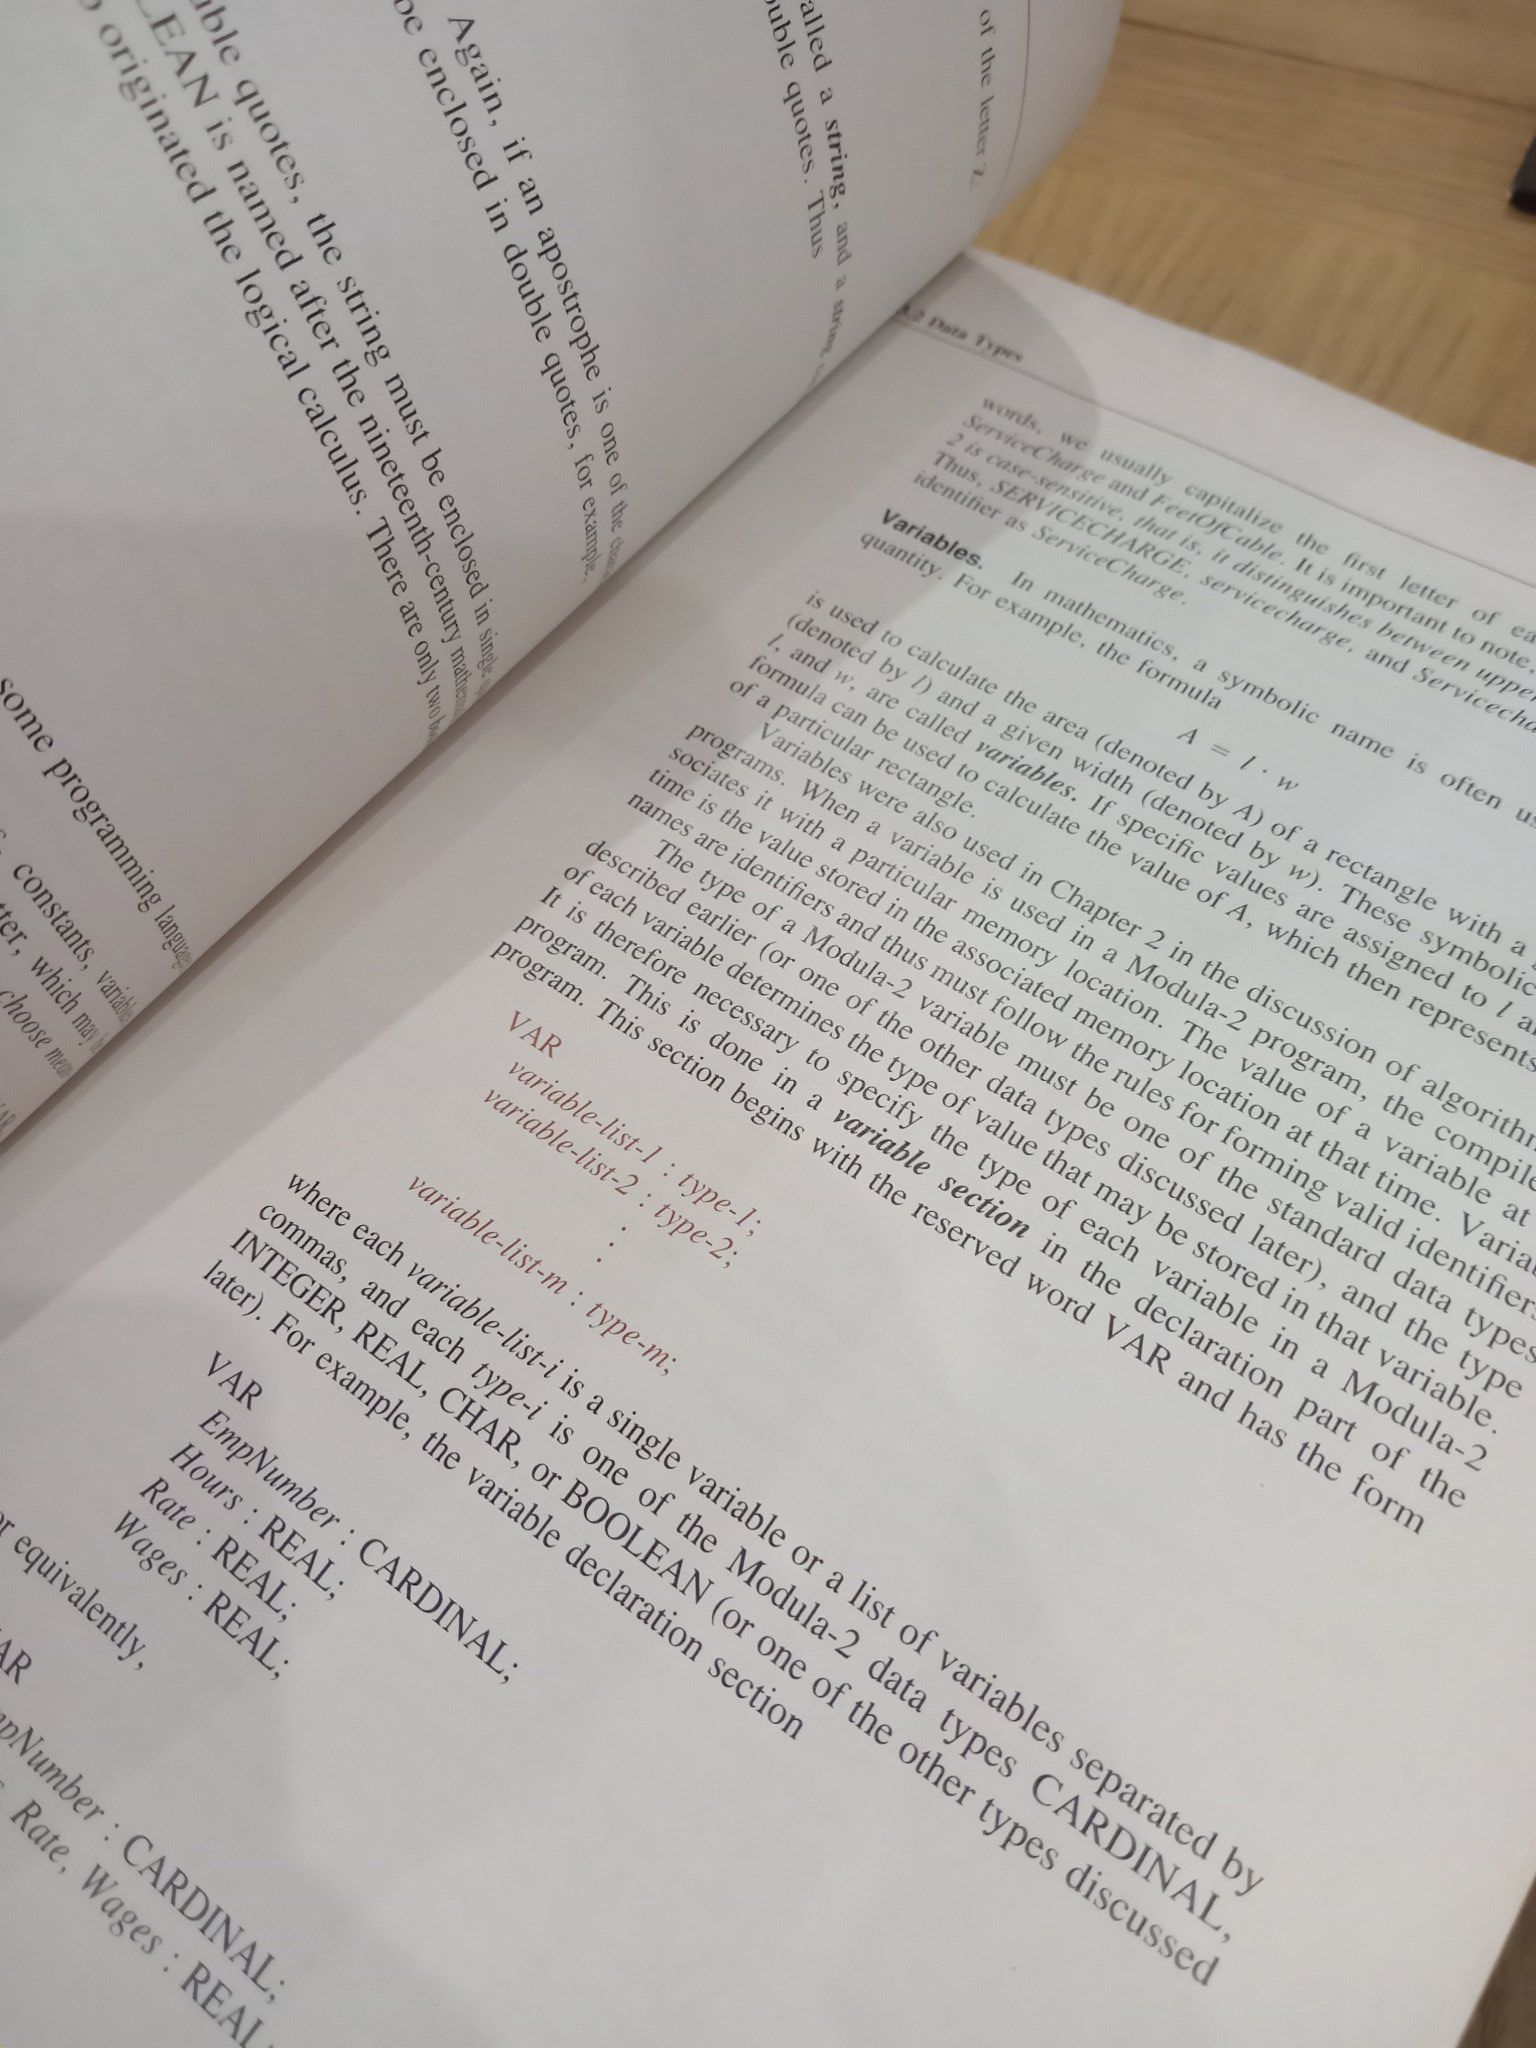 of the letter Z.
alled a string, and a string
ouble quotes. Thus
Again, if an apostrophe is one of the
be enclosed in double quotes, for example,
uble quotes, the string must be enclosed in single
LEAN is named after the nineteenth-century
o originated the logical calculus. There are only two
some programming
constants,
tter, which may
choose
Data Types
words, we usually capitalize the first letter of
ServiceCharge and FeetOfCable. It is important to note,
2 is case-sensitive, that is, it distinguishes between upper
Thus, SERVICECHARGE, servicecharge, and Servicecha
identifier as ServiceCharge.
Variables. In mathematics, a symbolic name is often us
quantity. For example, the formula
A = l · w
is used to calculate the area (denoted by A) of a rectangle with a
(denoted by l) and a given width (denoted by w). These symbolic
l, and w, are called variables. If specific values are assigned to l a
formula can be used to calculate the value of A, which then represents
of a particular rectangle.
Variables were also used in Chapter 2 in the discussion of algorithm
programs. When a variable is used in a Modula-2 program, the compile
sociates it with a particular memory location. The value of a variable at
time is the value stored in the associated memory location at that time. Varia
names are identifiers and thus must follow the rules for forming valid identifiers
The type of a Modula-2 variable must be one of the standard data types
described earlier (or one of the other data types discussed later), and the type
of each variable determines the type of value that may be stored in that variable.
It is therefore necessary to specify the type of each variable in a Modula-2
program. This is done in a variable section in the declaration part of the
program. This section begins with the reserved word VAR and has the form
VAR
variable-list-1 : type-1;
variable-list-2 : type-2;
.
.
variable-list-m : type-m;
where each variable-list-i is a single variable or a list of variables separated by
commas, and each type-i is one of the Modula-2 data types CARDINAL,
INTEGER, REAL, CHAR, or BOOLEAN (or one of the other types discussed
later). For example, the variable declaration section
VAR
EmpNumber : CARDINAL;
Hours : REAL;
Rate : REAL;
Wages : REAL;
or equivalently,
AR
mpNumber : CARDINAL;
Rate, Wages : REAL;